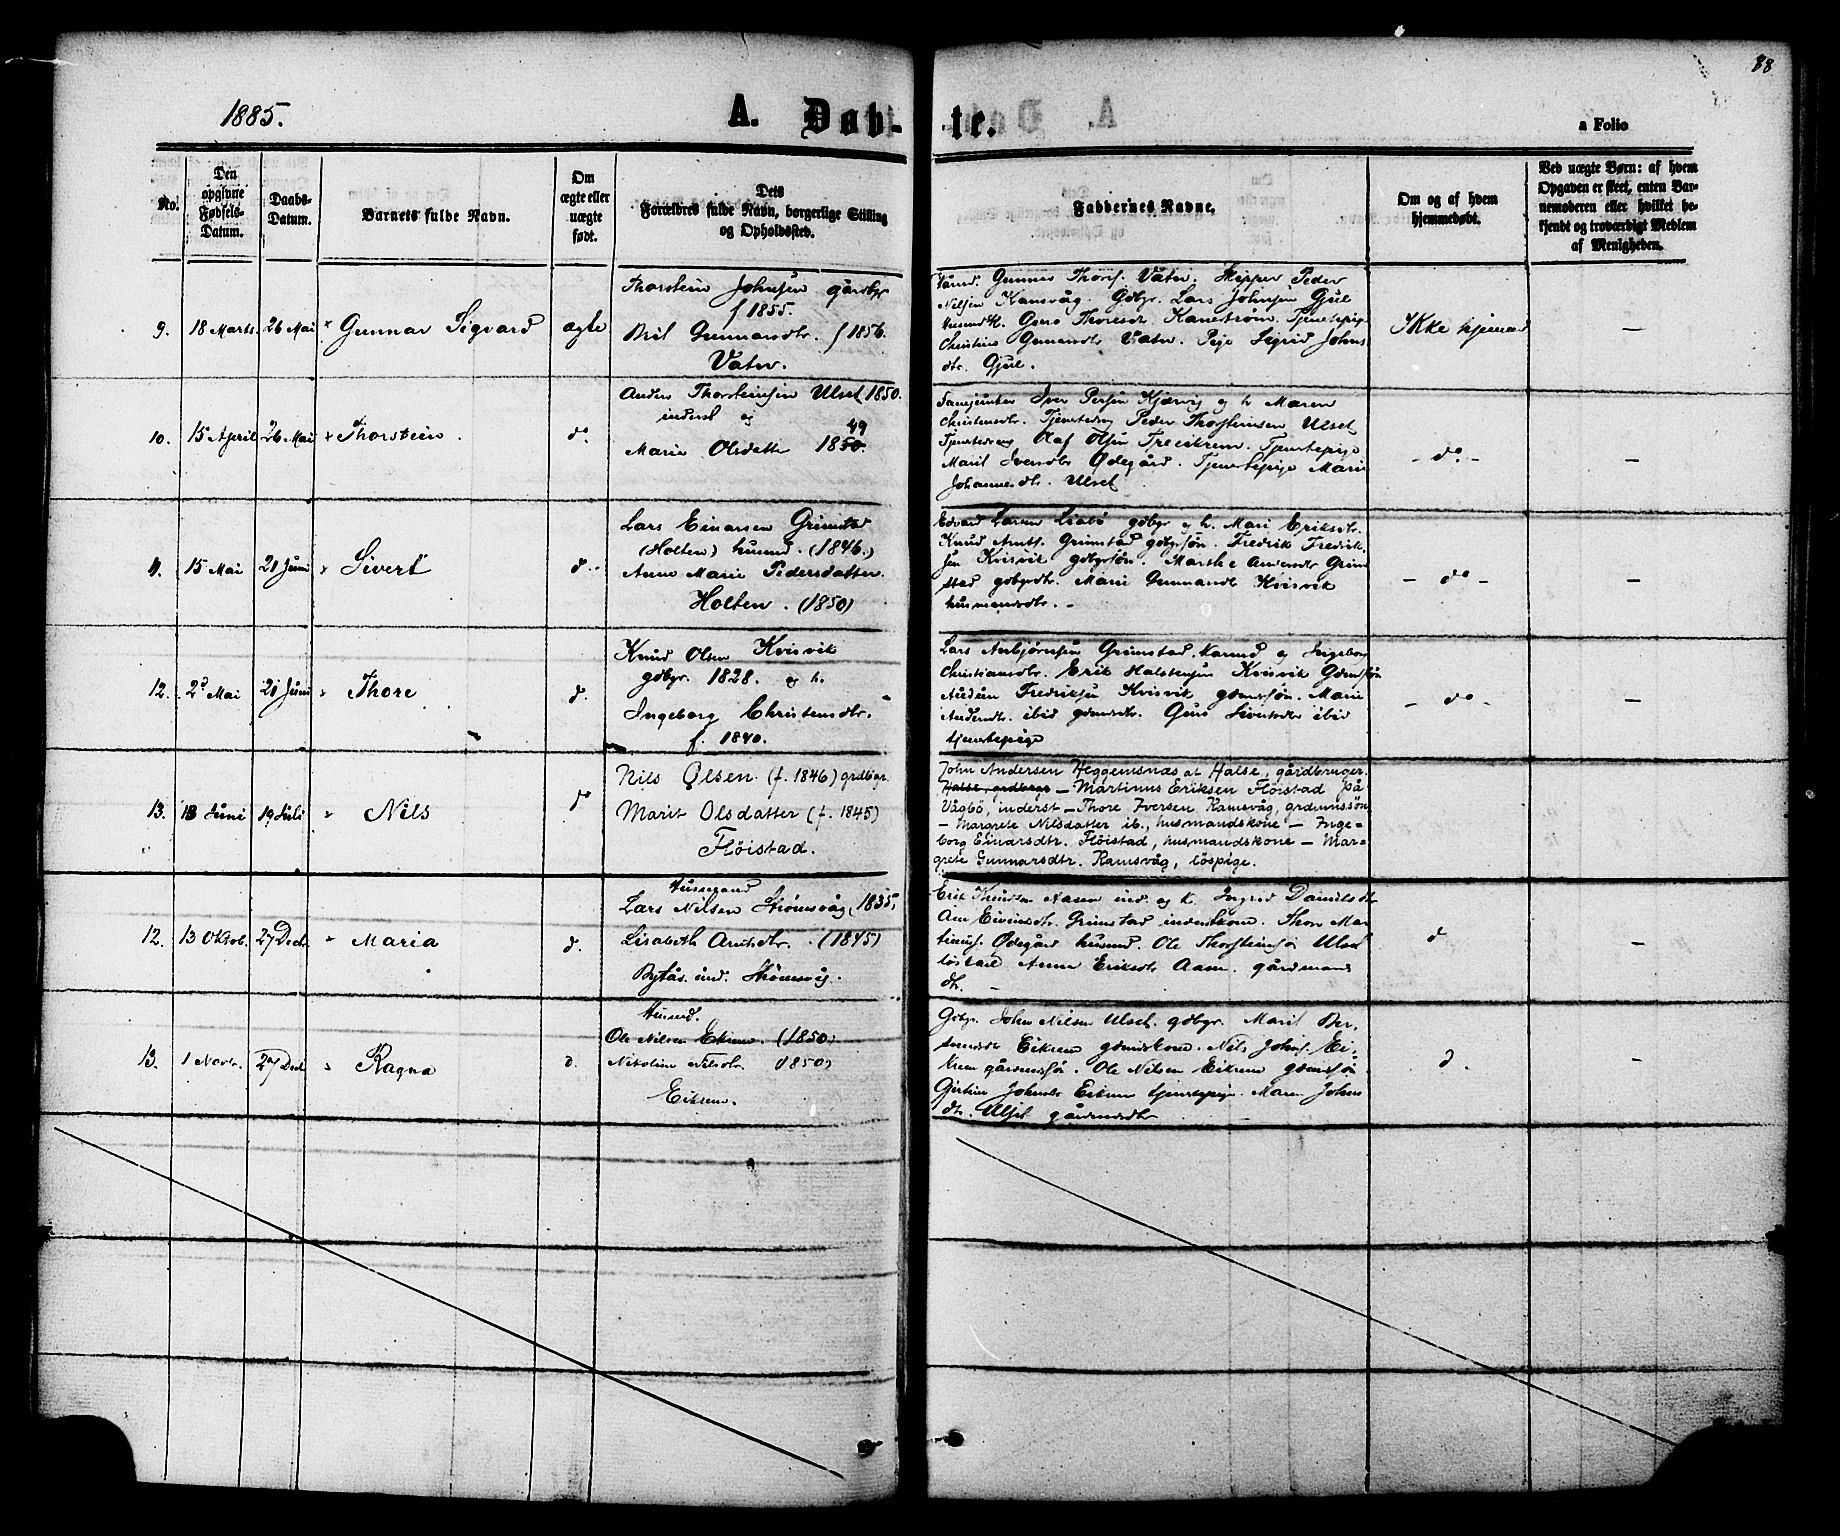 88
1885.
A. Døb-
te.
a Folio
No.
Den opgivne Fødsels-Datum.
Daabs-Datum.
Barnets fulde Navn.
Om ægte eller uægte født.
Dets Forældres fulde Navn, borgerlige Stilling og Opholdssted.
Faddernes Navne.
Om og af hvem hjemmedøbt.
Ved uægte Børn: af hvem Opgaven er skeet, enten Barnemoderen eller hvilket bekjendt og troværdigt Medlem af Menigheden.
9. 18 Marts 26 Mai Gunnar Sigvard ægte
Thorstein Johnsen gårdbr
f 1855.
Brit Gunnarsdtr. f 1856.
Vatn.
Gunnar Thors. Vatn. Skipper Peder
Nilsen Ramsvåg. Gdbr. Lars Johnsen Gjul
Thoresdr. Kanestrøm. Tjenstepig
Christine Gunnarsdtr Vatn. Pige Sigrid Johns
dtr. Gjul.
Ikke hjemmed
—
10. 15 April 26 Mai Thorstein. do.
Anders Thorsteinsen Ulset 1850.
inderst og
49
Marie Olsdatter 1850.
Iver Persen Kjørvig og h. Maren
Christensdtr. Tjenstedreng Peder Thorsteinsen Ulset
Tjenstedreng Olaf Olsen Treekrem. Tjenstepige
Marit Iversdtr Ødegård. Tjenstepige Marie
Johannesdtr. Ulset
- do -
—
11. 15 Mai 21 Juni Sivert d.
Lars Einarsen Grimstad
(Holten) husmd. (1846.)
Anne Marie Pedersdatter.
Holten. (1850)
Edvard Larsen gdbgr og h. Mari Eriksdtr.
Knud Arnts. Grimstad gdbgrsøn. Fredrik Fredrik-
sen Kvisvik gdbgrsøn. Marthe Andersdtr Grim
stad gdbgrdtr. Marie Gunnarsdtr Kvisvik
husmandsdtr. -
- do -
—
12. 2d Mai 21 Juni Thore d.
Knud Olsen Kvisvik
gdbgr. 1828. og h.
Ingeborg Christensdtr.
f. 1840.
Lars Anbjørnsen Grimstad. Kårmd og Ingeborg
Christiansdtr. Erik Halstensen Kvisvik Gdmdsøn
Fredriksen Kvisvik gdmdsøn. Marie
Andersdtr. ibid gdmdsdtr. Guro Sivertsdtr ibid
tjenstepige
- do -
—
13. 13 Juni 19 Juli Nils d
Nils Olsen. (f. 1846) grdbgr.
Marit Olsdatter (f. 1845)
Flöistad.
John Andersen Heggemsnæs at Halse, gårdbruger.
Halse, grdbrgr — Martinus Eriksen Flöistad på
Vågbö, inderst — Thore Iversen Ramsvåg, grdmnssön
— Margrete Nilsdatter ib., husmandskone — Inge-
borg Einarsdtr. Flöistad, husmandskone — Mar-
grete Gunnarsdtr. Ramsvåg, löspige.
12. 13 Oktob. 27 Decb. Maria d.
Husmand
Lars Nilsen Strömsvåg, 1835,
Lisabeth Arntsdtr. (1845)
ind. Strömsvåg.
Erik Knudsen Nasen ind. og k. Ingrid Danielsdtr
Ane Eivindsdtr. Grimstad inderstkone. Thore Mar-
tinus. Ødegård husmd. Ole Thorsteinsö Ulset
löskarl Anne Eriksdtr Aasen. gårdmands
dtr. -
d
—
13. 1 Novbr. 27 Decb Ragna d.
Husmd.
Ole Nilsen Eikrem. (1850)
Nikoline Nilsdtr 1850)
Eikrem.
Gdbgr. John Nilsen Ulset. gdbgr. Marit Ber,
Eikrem gdmdskone. Nils Johns. Ei,
krem gårdmdsö. Ole Nilsen Eikrem gdmdsön
Gjertine Johnsdtr Eikrem tjenstepige. Maren Johns
dtr. Ulset gårdmdsdtr
d.
—